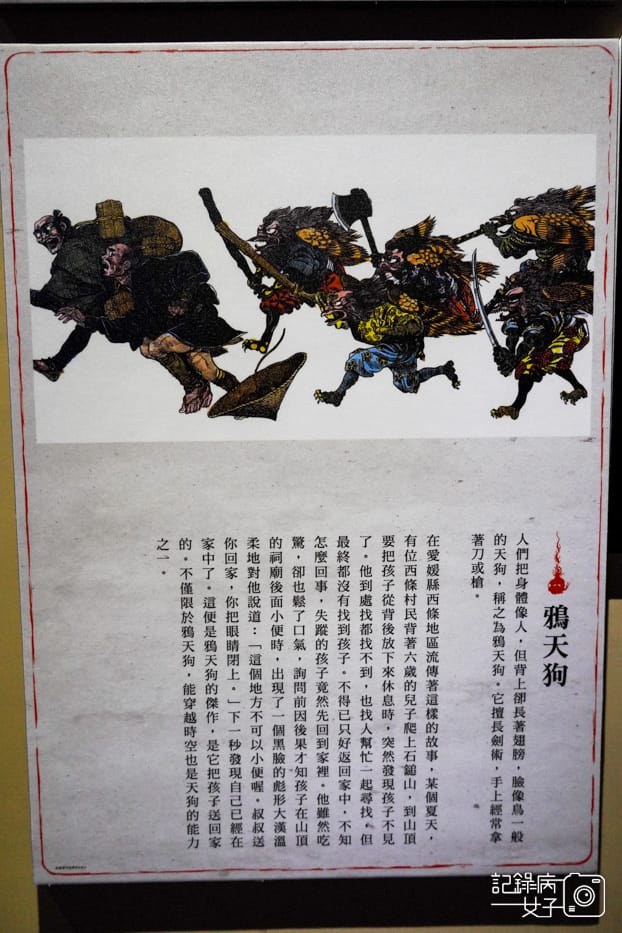 鴉天狗
人們把身體像人，但背上卻長著翅膀，臉像鳥一般
的天狗，稱之為鴉天狗。它擅長劍術，手上經常拿
著刀或槍。
在愛媛縣西條地區流傳著這樣的故事，某個夏天，
有位西條村民背著六歲的兒子爬上石鎚山，到山頂
要把孩子從背後放下來休息時，突然發現孩子不見
了。他到處找都找不到，也找人幫忙一起尋找。但
最終都沒有找到孩子。不得已只好返回家中，不知
怎麼回事，失蹤的孩子竟然先回到家裡。他雖然吃
驚，卻也鬆了口氣，詢問前因後果才知孩子在山頂
的祠廟後面小便時，出現了一個黑臉的彪形大漢溫
柔地對他說道：「這個地方不可以小便喔。叔叔送
你回家，你把眼睛閉上。」下一秒發現自己已經在
家中了。這便是鴉天狗的傑作，是它把孩子送回家
的。不僅限於鴉天狗，能穿越時空也是天狗的能力
之一。
記錄病
女子